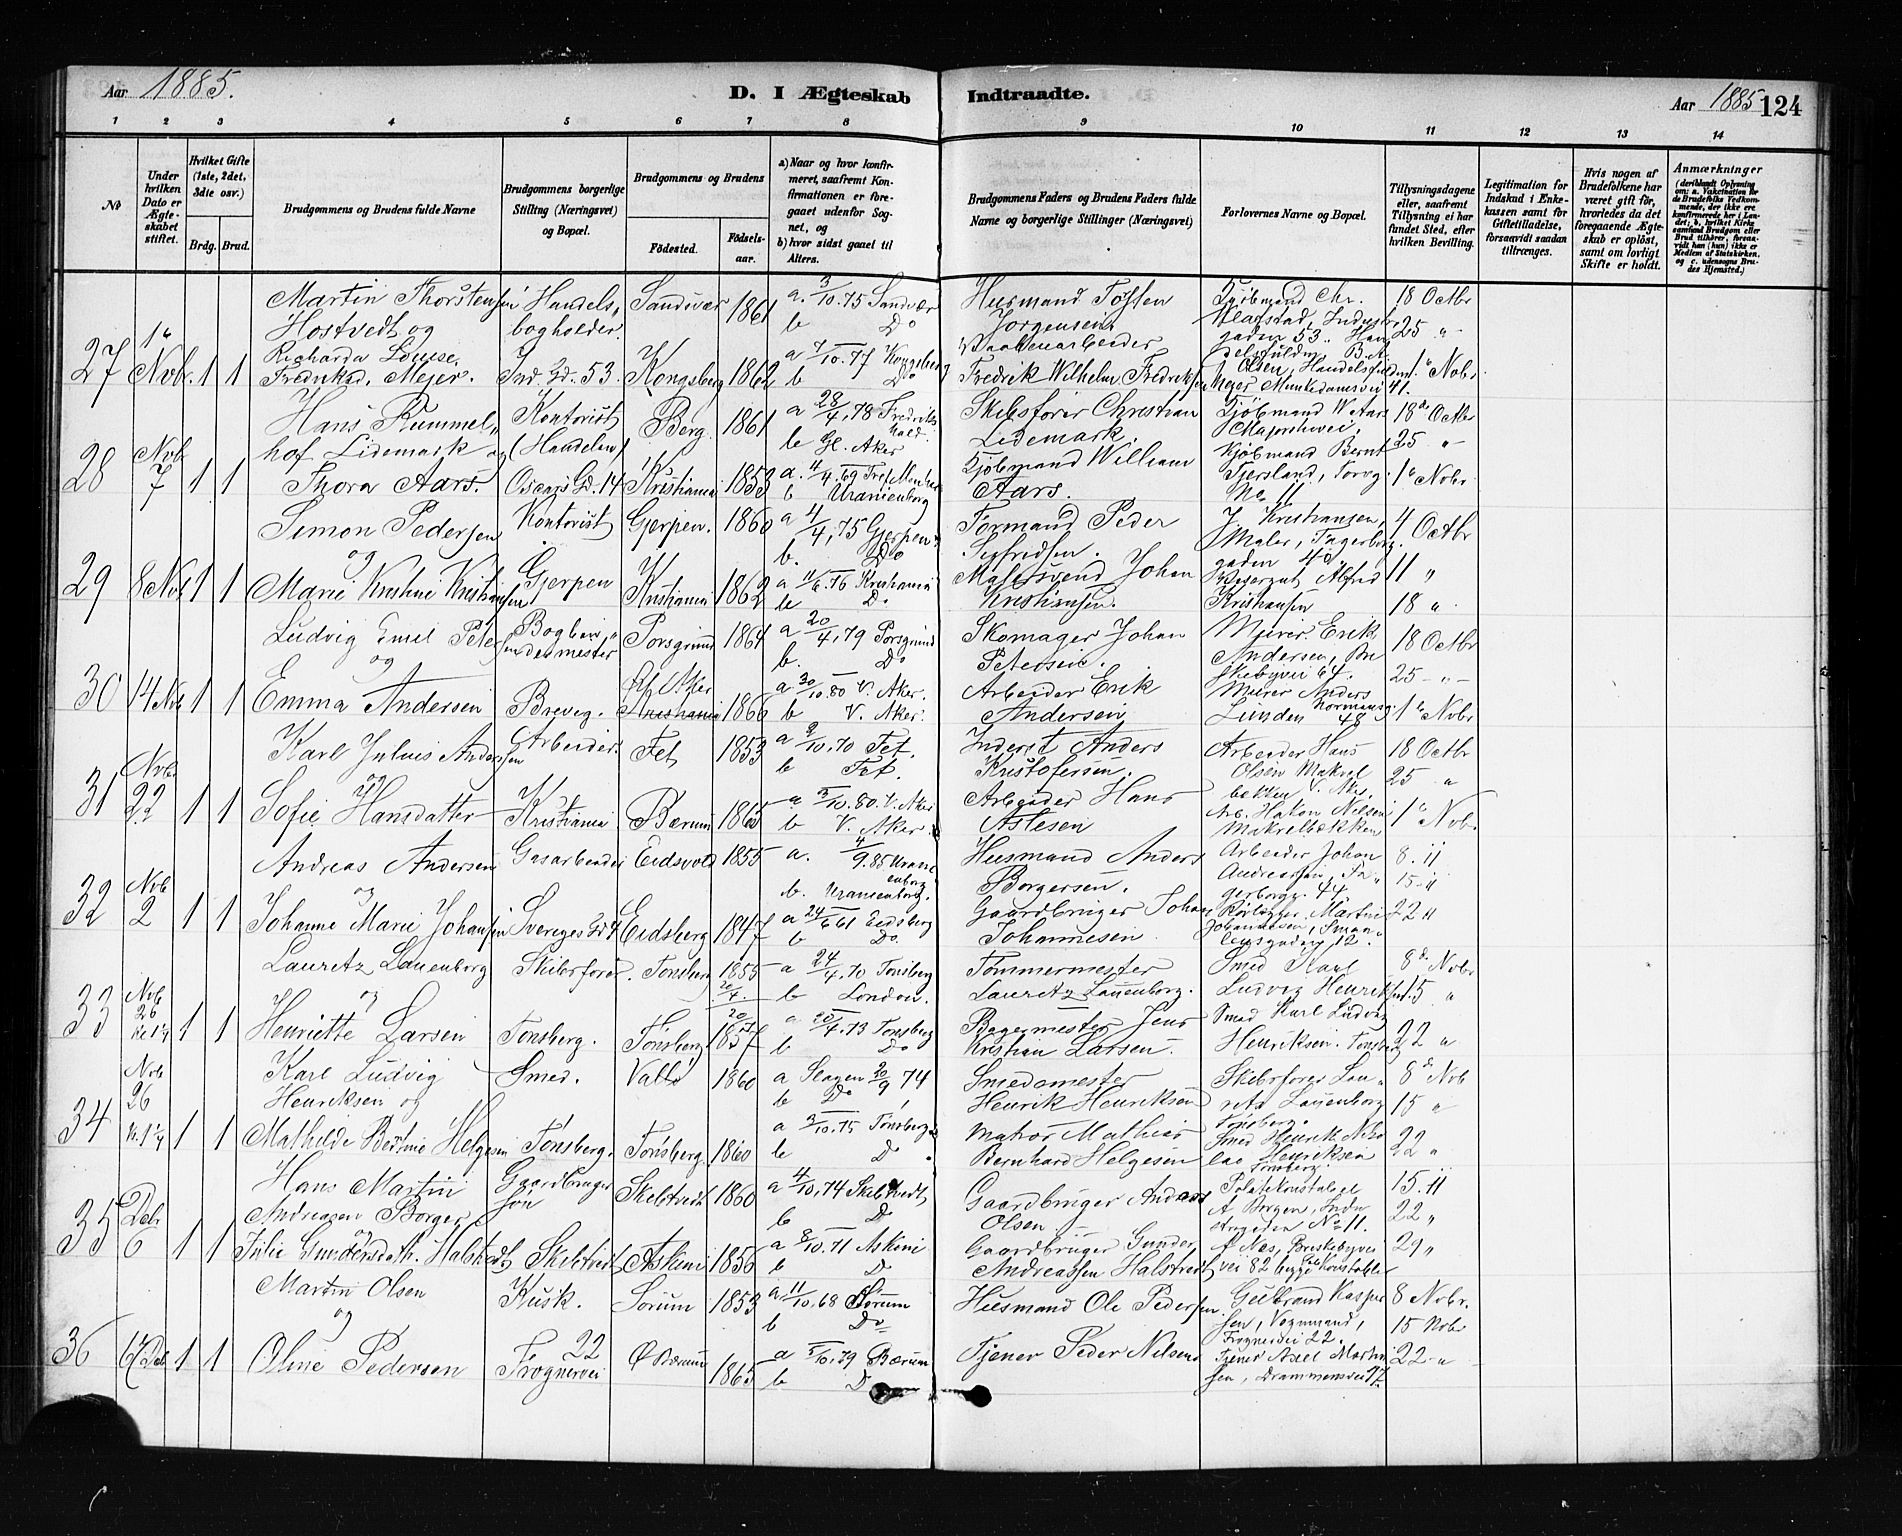 Aar 1885.
D. I Ægteskab Indtraadte.
Aar 1885 124
1 2 3 4 5 6 7 8 9 10 11 12 13 14
No
Under hvilken Dato er Ægteskabet stiftet.
Hvilket Gifte (1ste, 2det, 3die osv.)
Brdg. Brud.
Brudgommens og Brudens fulde Navne
Brudgommens borgerlige Stilling (Næringsvei) og Bopæl.
Brudgommens og Brudens
Fødested. Fødselsaar.
a) Naar og hvor konfirmeret, saafremt Konfirmationen er foregaaet udenfor Sognet, og
b) hvor sidst gaaet til Alters.
Brudgommens Faders og Brudens Faders fulde Navne og borgerlige Stillinger (Næringsvei)
Forlovernes Navne og Bopæl.
Tillysningsdagene eller, saafremt Tillysning ei har fundet Sted, efter hvilken Bevilling.
Legitimation for Indskud i Enkekassen samt for Giftetilladelse, forsaavidt saadan tiltrænges.
Hvis nogen af Brudefolkene har været gift før, hvorledes da det foregaaende Ægteskab er opløst, samt om lovligt Skifte er holdt.
Anmærkninger
27 1ste Novbr. 1 1
Martin Thorstensen Handels, Sandsvær 1861 a. 3/10.75 Sandsvær Husmand Toffen Kjøbmand Chr. 18 Octbr
Hostvedt og bogholder. b Do Jørgensen. 25 "
Richarda Louise Ind. Gd. 53. Kongsberg 1862 a 7/10.77 Kongsberg Vaabenarbeider
Fredrikad. Mejer. b Do Fredrik Wilhelm Fredriksen Mejer Munkedamsvei 41. 1ste Nobr
28 Nvb 7 1 1
Hans Rummel, Kontorist Berg. 1861 a 28/4.78 Fredrikshald. Skibsfører Christian Kjøbmand W. Aars 18de Octbr
hof Lidemark og (Handelen) b Gl. Aker Lidemark. Majorstuvei, 25 "
Thora Aars. Oscars Gd. 14 Kristiania 1853 a. 4/4.69 Kjøbmand William Kjøbmand Bernt 1ste Nobr
b Uranienborg Aars. No 11
29 8 Nov 1 1
Simon Pedersen Kontorist Gjerpen. 1860 a 4/4.75 Gjerpen. Formand Peder J. Kristiansen, 4. Octbr
og b. Do Sigfredsen. Maler, Fagerborggaden 40
Marie Kristine Kristiansen Gjerpen Kristiania 1862 a 11/6.76 Kristiania Malersvend Johan Alfred 11 "
b Do Kristiansen. Kristiansen 18 "
30 14 Nov 1 1
Ludvig Emil Petersen Bogbindermester Porsgrund 1864 a 20/4.79 Porsgrund Skomager Johan Murer Erik 18 Octbr
og b. Do Petersen. Andersen, Briskebyvei 64. 25 - " -
Emma Andersen Brevig. Gl. Aker Kristiania 1866 a 30/10.80 V. Aker. Arbeider Erik Murer Anders
b V. Aker. Andersen Lunden Normansg. 48 1ste Nobr
31 Nvbr 22 1 1
Karl Julius Anderssen Arbeider. Fet 1853 a 9/10.70 Fet. Inderst Anders Arbeider Hans 18 Octbr
og b Fet. Kristofersen. Olsen Makrelbekken V. Aker. 25 "
Sofie Hansdatter Kristiania Bærum 1865 a 3/10.80. V. Aker Arbeider Hans Arb. Hakon Nilsen 1ste Nobr.
b V. Aker Aslesen Makrelbækken
32 Nvb 2 1 1
Andreas Andersen Gasarbeider Eidsvold 1855 a. 4/9.85 Uranienborg Husmand Anders Arbeider Johan 8. 11
og b. Uranienborg. Borgersen. Andreassen, Fagerborgg. 44 15-11
Johanne Marie Johansen Sveriges Gd 4 Eidsberg 1847 a 24/6 61 Eidsberg Gaardbruger Johan Rørlægger Martin 22 11
b Do. Johannesen Johannesen, Smalensgaden 12.
33 Nvb 26 Kl 1¼ 1 1
Lauretz Lauenborg Skibsfører. Tønsberg 1855 20/4. a 24/4.70 Tønsberg Tømmermester Smed Karl 8de Novbr
og b London. Lauretz Lauenborg. Ludvig Henriksen. 15 "
Henriette Larsen Tønsberg. Tønsberg 1857 a 20/4.73 Tønsberg Bagermester Jens Smed Karl Ludvig
b Do Kristian Larsen. Henriksen. Tønsberg 22 "
34 Nvb 26 Kl. 1¼ 1 1
Karl Ludvig Smed. Vallø 1860 a Slagen 20/9 74 Smedemester Skibsfører Lau, 8de Nvb
Henriksen og b Do Henrik Henriksen retz Lauenborg 15 "
Tønsberg.
Mathilde Bertine Helgesen Tønsberg. Tønsberg. 1860 a 3/10.75 Tønsberg Matros Mathias Smed Henrik Nico
b Do Bernhard Helgesen lae Henriksen Tønsberg. 22 "
35 Debr 6 1 1
Hans Martin Gaardbruger Skibtvedt 1860 a 4/10.74 Skibtvedt, Gaardbruger Andreas Politikonstabel 15. 11
Andreasen Borger søn b D Olsen. A Borgen, Industrigaden No 11. 22 "
og
Julie Gundersdatr. Halstvedt Skibtvedt Askim 1856 a 8/10.71 Askim Gaardbruger Gunder A Næs, Briskebyvei 29 "
b D Andreassen Halstvedt vei 82 begge Konstabler
36 6/12 Deb 1 1
Martin Olsen Kusk. Sørum 1853 a 11/10.68 Sørum Husmand Ole Pedersen Gulbrand Kasper 8 Nobr.
og b Do sen, Vognmand, Frognervei 22. 15 Nobr
Oline Pedersen 22 Frognervei Ø Bærum 1865 a 5/10.79 Bærum Tjener Peder Nilsen Tjener Axel Martinsen, Drammensvei 77. 22 - "
b D